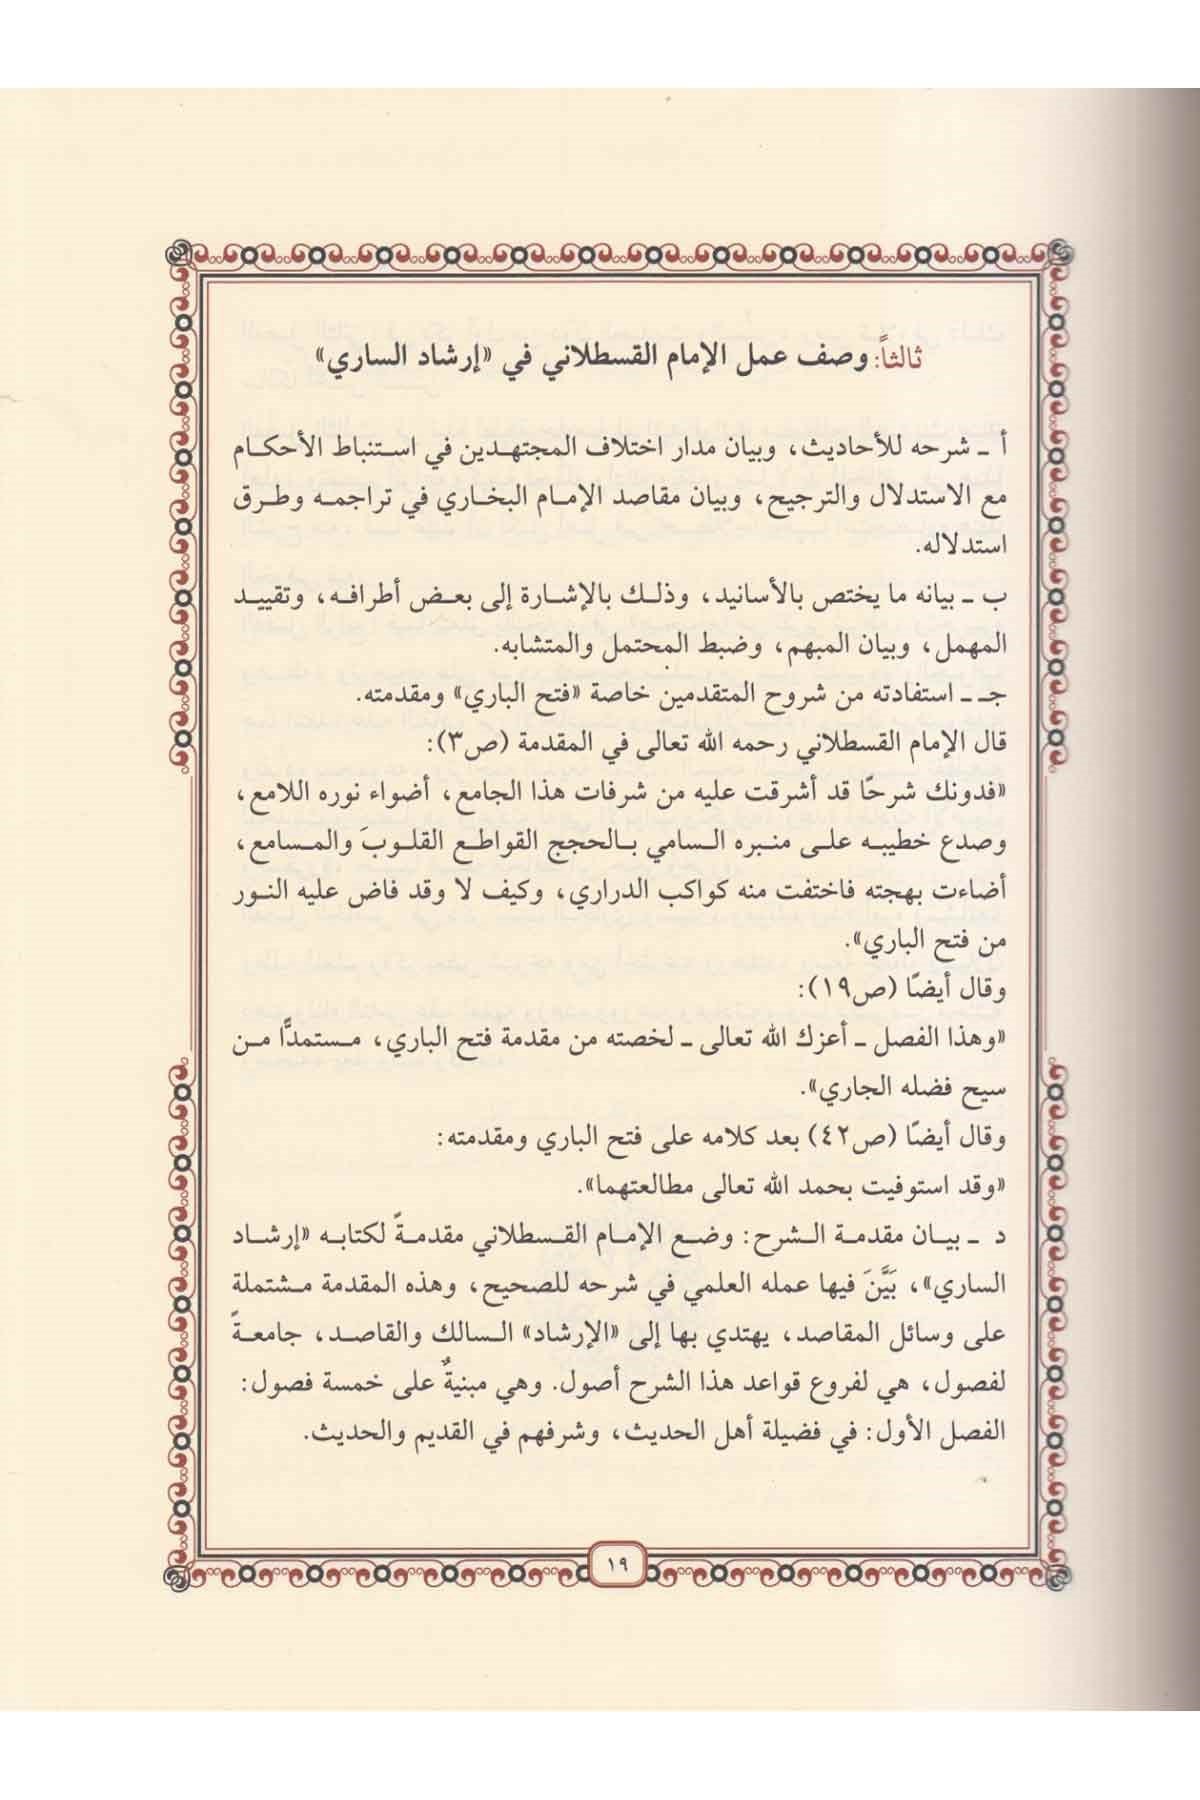 ثالثاً: وصف عمل الإمام القسطلاني في «إرشاد الساري»
أ ـ شرحه للأحاديث، وبيان مدار اختلاف المجتهدين في استنباط الأحكام
مع الاستدلال والترجيح، وبيان مقاصد الإمام البخاري في تراجمه وطرق
استدلاله.
ب ـ بيانه ما يختص بالأسانيد، وذلك بالإشارة إلى بعض أطرافه، وتقييد
المهمل، وبيان المبهم، وضبط المحتمل والمتشابه.
جـ ـ استفادته من شروح المتقدمين خاصة «فتح الباري» ومقدمته.
قال الإمام القسطلاني رحمه الله تعالى في المقدمة (ص٣):
«فدونك شرحًا قد أشرقت عليه من شرفات هذا الجامع، أضواء نوره اللامع،
وصدع خطيبه على منبره السامي بالحجج القواطع القلوبَ والمسامع،
أضاءت بهجته فاختفت منه كواكب الدراري، وكيف لا وقد فاض عليه النور
من فتح الباري».
وقال أيضًا (ص١٩):
«وهذا الفصل ـ أعزك الله تعالى ـ لخصته من مقدمة فتح الباري، مستمدًّا من
سيح فضله الجاري».
وقال أيضًا (ص٤٢) بعد كلامه على فتح الباري ومقدمته:
«وقد استوفيت بحمد الله تعالى مطالعتهما».
د ـ بيان مقدمة الشرح: وضع الإمام القسطلاني مقدمةً لكتابه «إرشاد
الساري»، بَيَّنَ فيها عمله العلمي في شرحه للصحيح، وهذه المقدمة مشتملة
على وسائل المقاصد، يهتدي بها إلى «الإرشاد» السالك والقاصد، جامعةً
لفصول، هي لفروع قواعد هذا الشرح أصول. وهي مبنيةٌ على خمسة فصول:
الفصل الأول: في فضيلة أهل الحديث، وشرفهم في القديم والحديث.
١٩